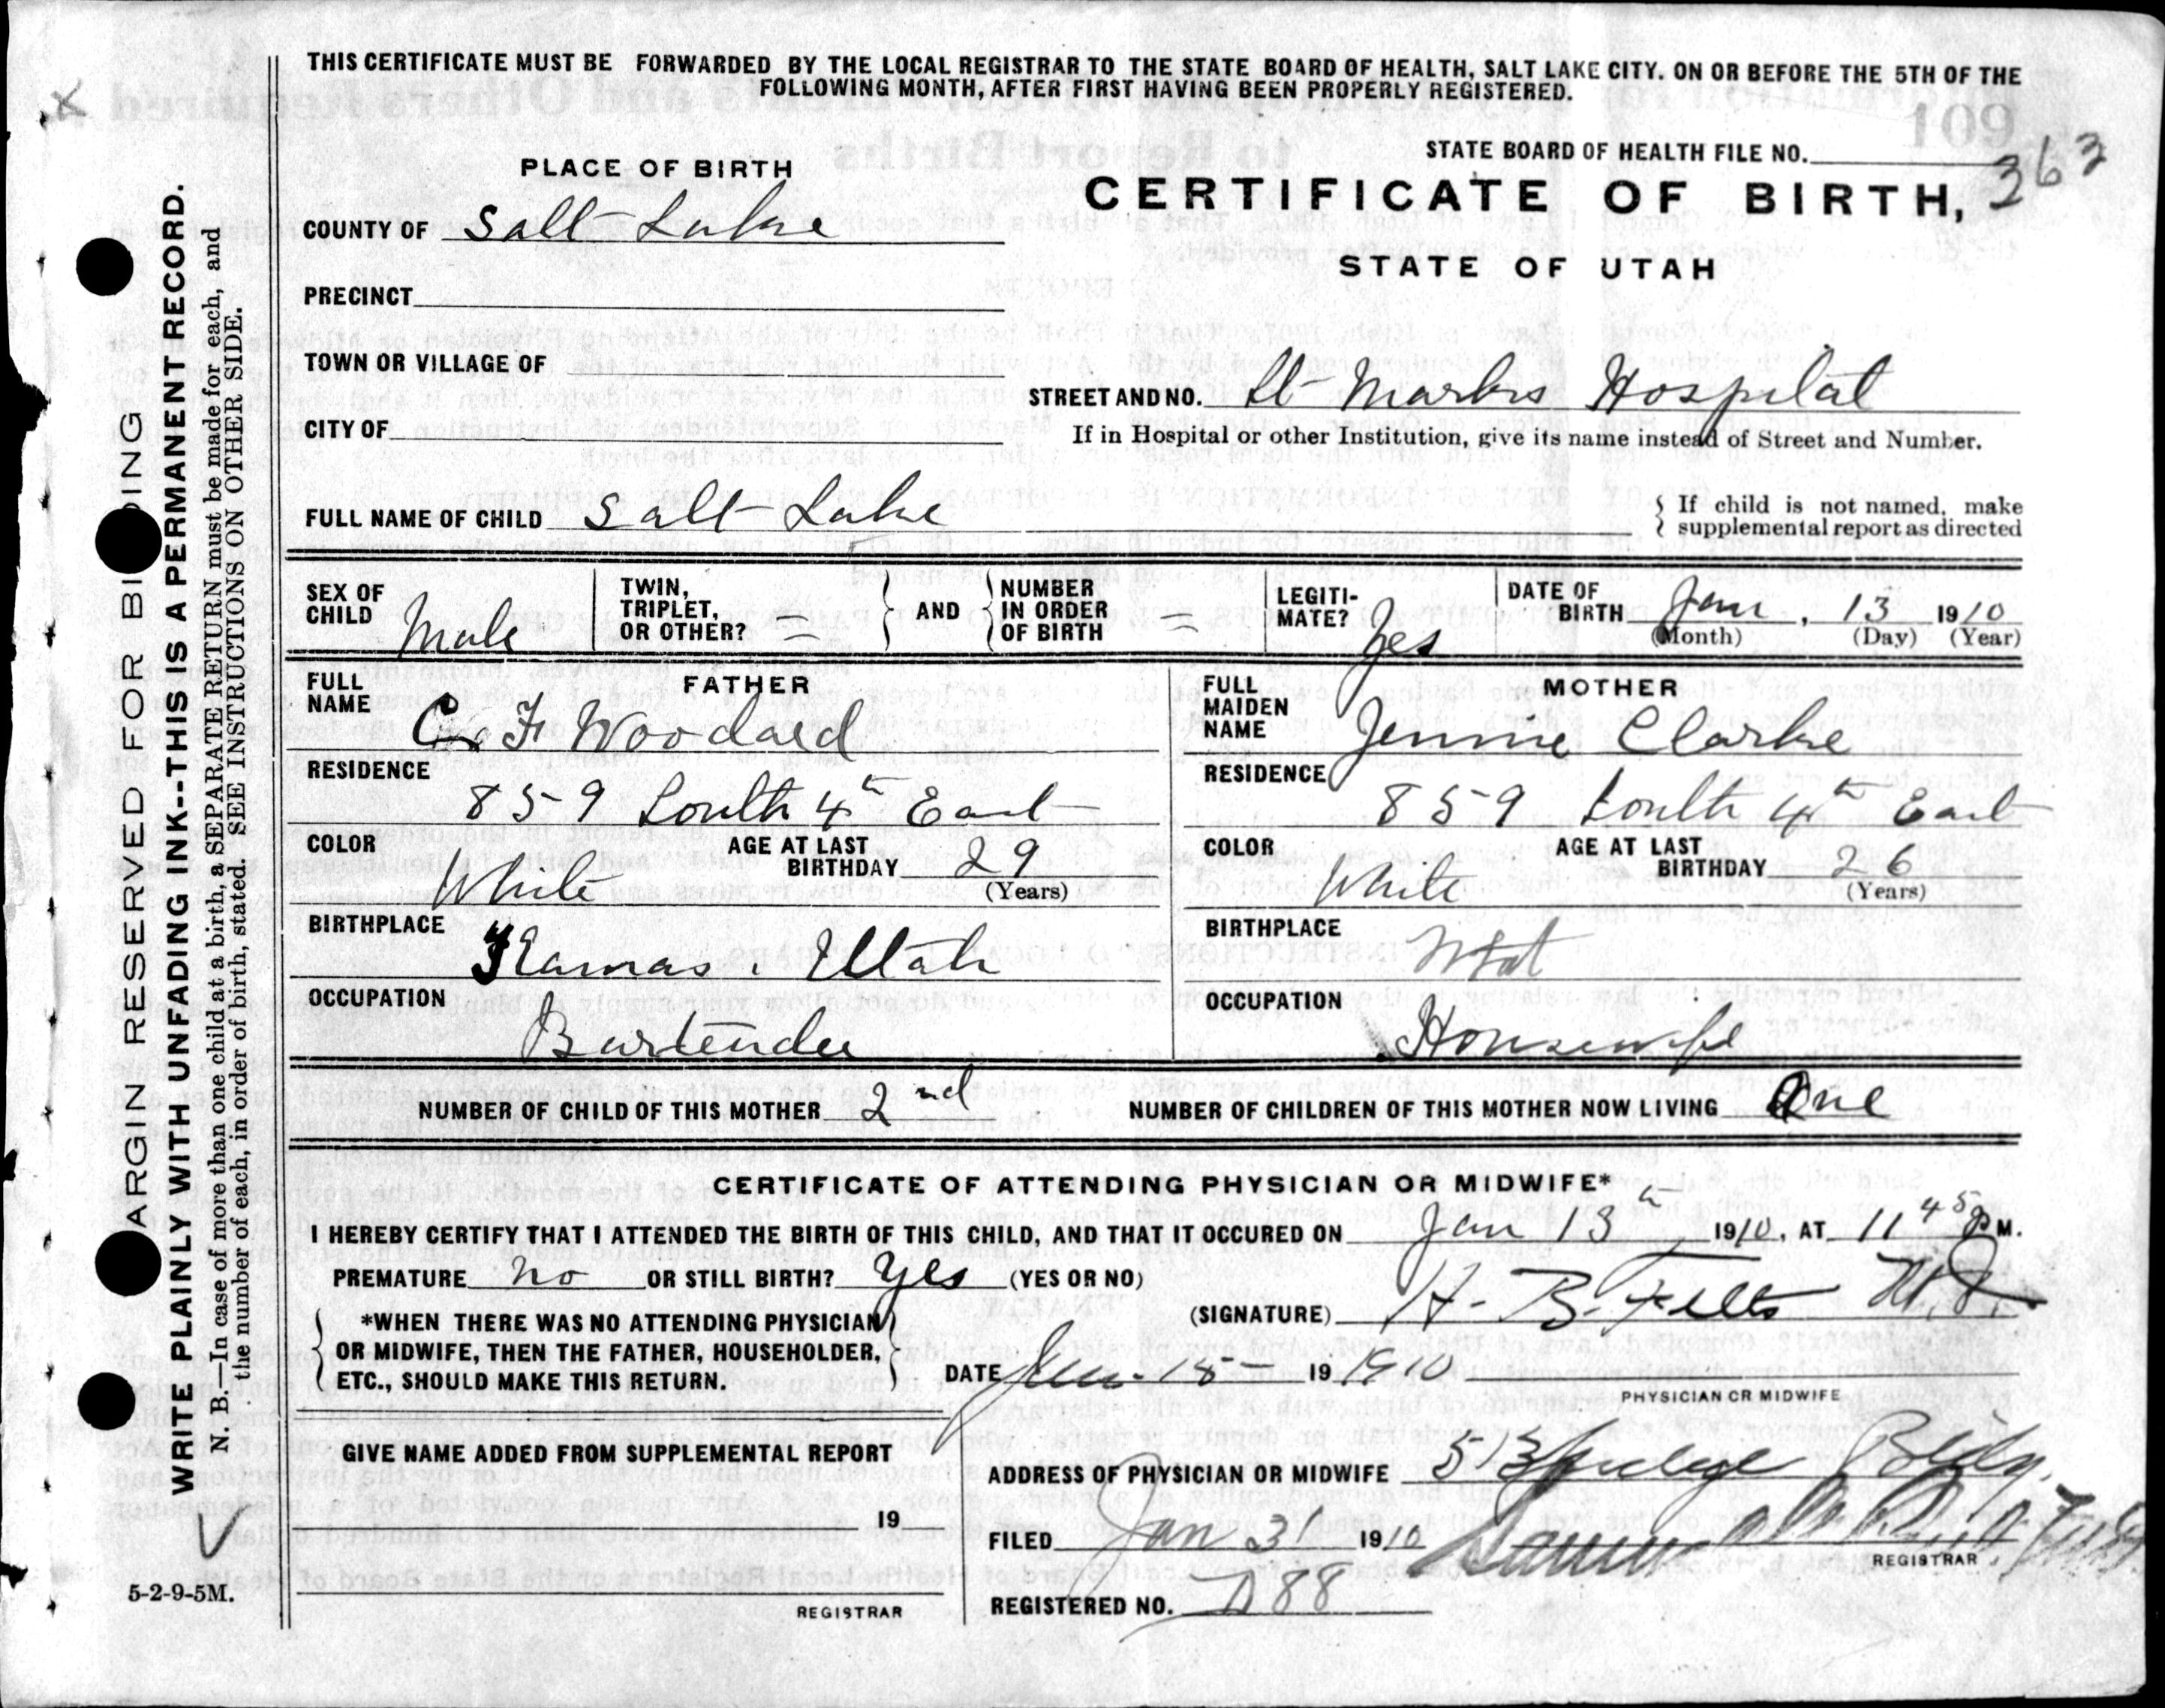 THIS CERTIFICATE MUST BE FORWARDED BY THE LOCAL REGISTRAR TO THE STATE BOARD OF HEALTH, SALT LAKE CITY. ON OR BEFORE THE 5TH OF THE
FOLLOWING MONTH, AFTER FIRST HAVING BEEN PROPERLY REGISTERED.
109
STATE BOARD OF HEALTH FILE NO.
363
CERTIFICATE OF BIRTH,
STATE OF UTAH
PLACE OF BIRTH
COUNTY OF Salt Lake
PRECINCT
TOWN OR VILLAGE OF
CITY OF
STREET AND NO. St Marks Hospital
If in Hospital or other Institution, give its name instead of Street and Number.
FULL NAME OF CHILD Salt Lake
If child is not named, make
supplemental report as directed
SEX OF CHILD Male
TWIN, TRIPLET, OR OTHER? =
AND
NUMBER IN ORDER OF BIRTH =
LEGITI-MATE? Yes
DATE OF BIRTH Jan, 13 1910
(Month) (Day) (Year)
FATHER
FULL NAME C. F. Woodard
RESIDENCE
859 South 4th East
COLOR White
AGE AT LAST BIRTHDAY 29
(Years)
BIRTHPLACE
Kamas, Utah
OCCUPATION
Bartender
MOTHER
FULL MAIDEN NAME Jennie Clarke
RESIDENCE
859 South 4th East
COLOR White
AGE AT LAST BIRTHDAY 26
(Years)
BIRTHPLACE
OCCUPATION
Housewife
NUMBER OF CHILD OF THIS MOTHER 2nd
NUMBER OF CHILDREN OF THIS MOTHER NOW LIVING One
CERTIFICATE OF ATTENDING PHYSICIAN OR MIDWIFE*
I HEREBY CERTIFY THAT I ATTENDED THE BIRTH OF THIS CHILD, AND THAT IT OCCURED ON Jan 13th 1910, AT 11 45 P M.
PREMATURE no OR STILL BIRTH? Yes (YES OR NO)
(SIGNATURE) H. B. Felts M.D.
*WHEN THERE WAS NO ATTENDING PHYSICIAN
OR MIDWIFE, THEN THE FATHER, HOUSEHOLDER,
ETC., SHOULD MAKE THIS RETURN.
DATE Jan. 15 19 1910
PHYSICIAN OR MIDWIFE
GIVE NAME ADDED FROM SUPPLEMENTAL REPORT
19
REGISTRAR
ADDRESS OF PHYSICIAN OR MIDWIFE 513 Judge Bldg.
FILED Jan 31 1910
REGISTRAR
REGISTERED NO. D88
MARGIN RESERVED FOR BINDING
WRITE PLAINLY WITH UNFADING INK--THIS IS A PERMANENT RECORD.
N. B.—In case of more than one child at a birth, a SEPARATE RETURN must be made for each, and
the number of each, in order of birth, stated. SEE INSTRUCTIONS ON OTHER SIDE.
5-2-9-5M.